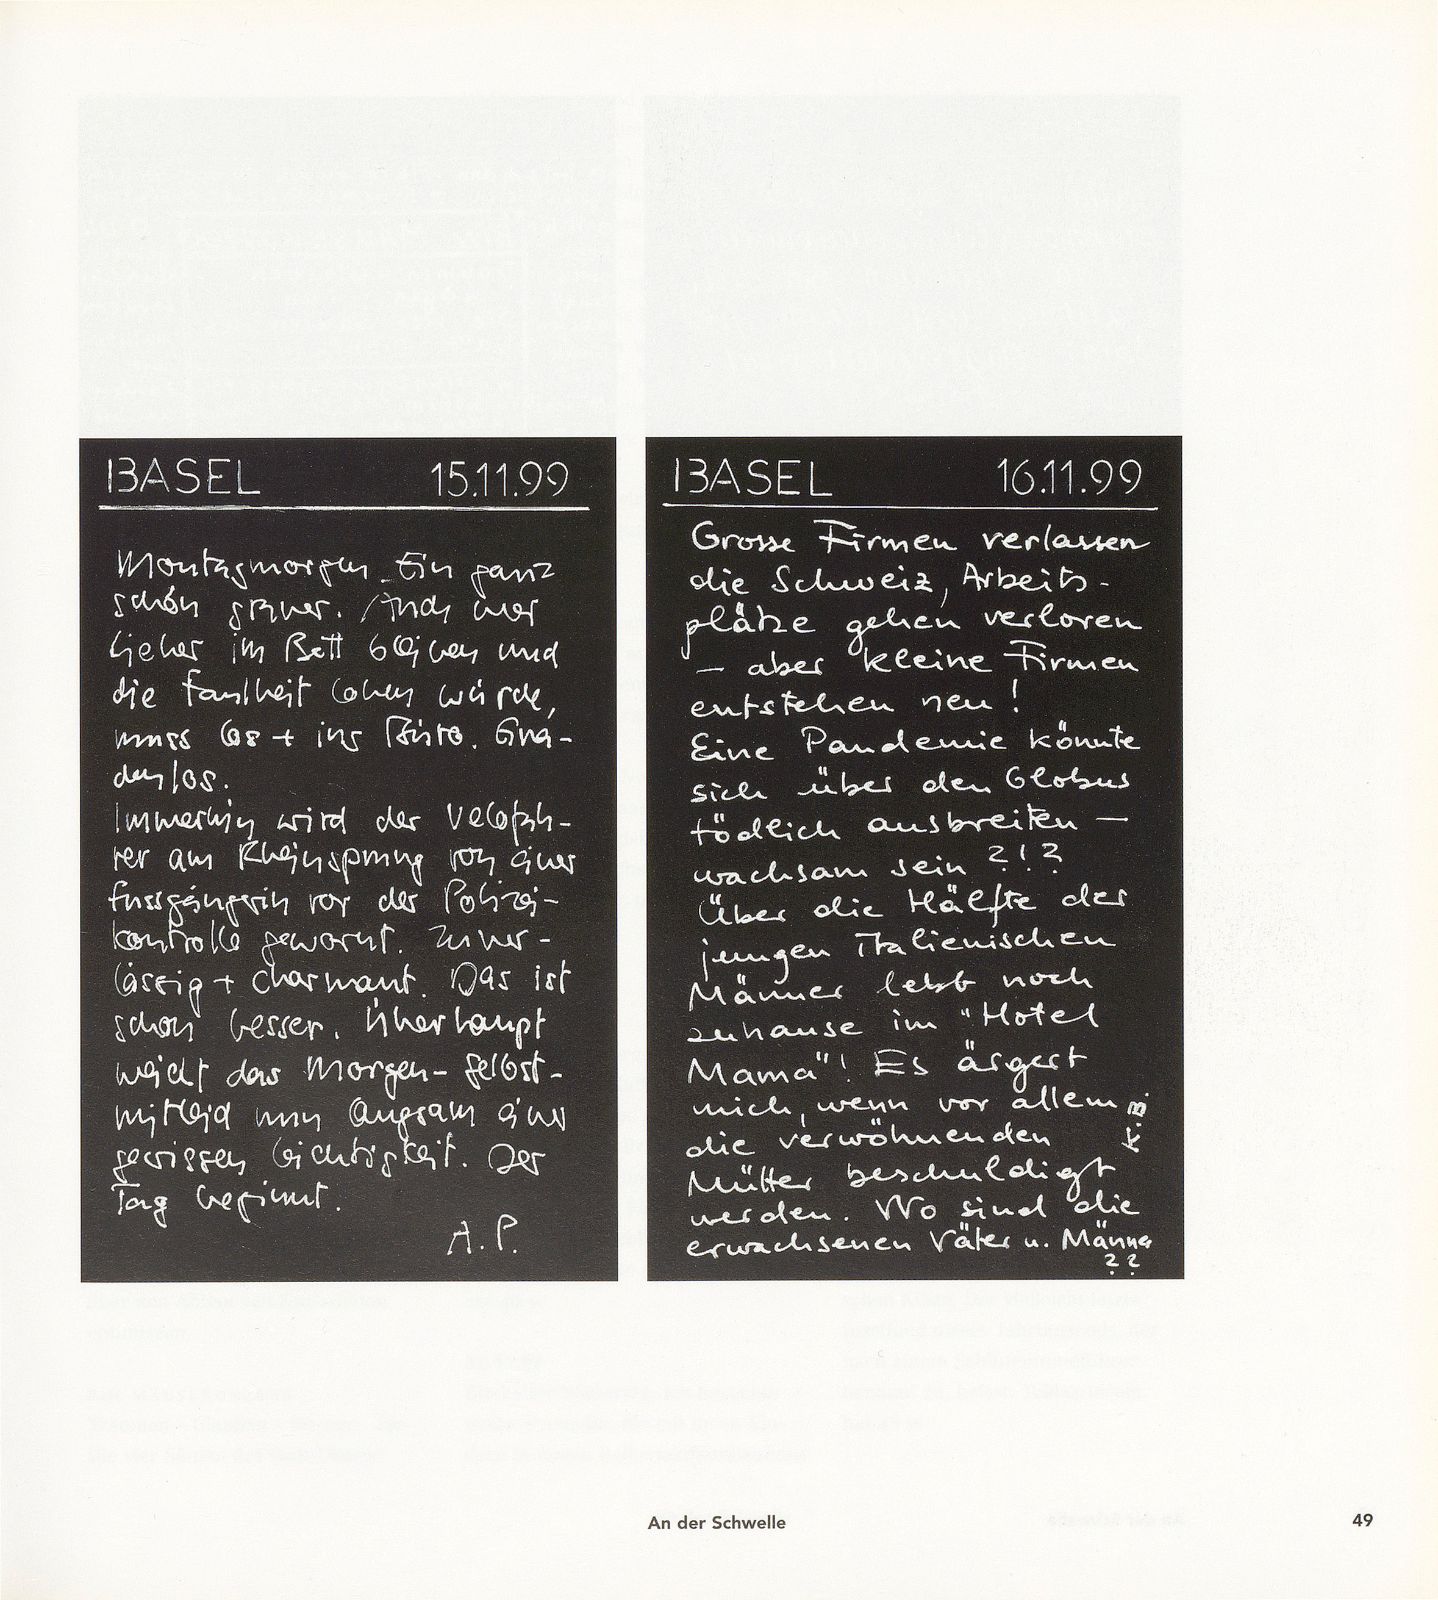 BASEL 15.11.99
Montagmorgen. Ein ganz
schön grauer. Auch wer
lieber im Bett bleiben und
die Faulheit loben würde,
muss los + ins Büro. Gna-
denlos.
Immerhin wird der Velofah-
rer am Rheinsprung von einer
Fussgängerin vor der Polizei-
kontrolle gewarnt. Zuver-
lässig + charmant. Das ist
schon besser. Überhaupt
weicht das Morgen-Selbst-
mitleid nun langsam einer
gewissen Leichtigkeit. Der
Tag beginnt.
A.P.
BASEL 16.11.99
Grosse Firmen verlassen
die Schweiz, Arbeits-
plätze gehen verloren
– aber kleine Firmen
entstehen neu!
Eine Pandemie könnte
sich über den Globus
tödlich ausbreiten –
wachsam sein ?!?
Über die Hälfte der
jungen Italienischen
Männer lebt noch
zuhause im "Hotel
Mama"! Es ärgert
mich, wenn vor allem
die verwöhnenden
Mütter beschuldigt
werden. Wo sind die
erwachsenen Väter u. Männer
??
An der Schwelle
49